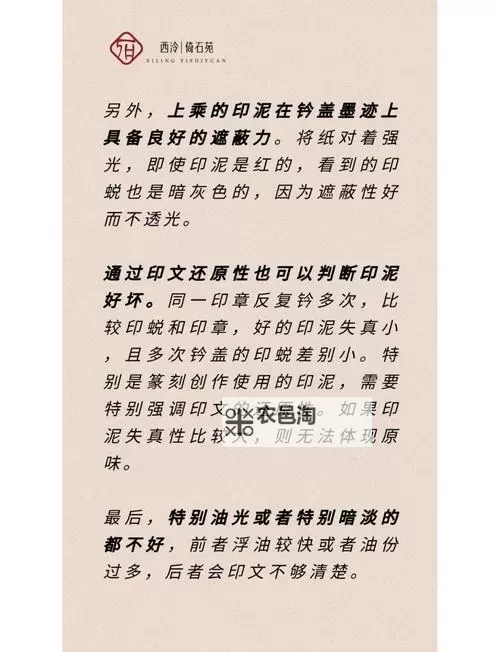 西泠|倚石苑
XILING YISHIYUAN
另外，上乘的印泥在钤盖墨迹上
具备良好的遮蔽力。将纸对着强
光，即使印泥是红的，看到的印
蜕也是暗灰色的，因为遮蔽性好
而不透光。
通过印文还原性也可以判断印泥
好坏。同一印章反复钤多次，比
较印蜕和印章，好的印泥失真小
，且多次钤盖的印蜕差别小。特
别是篆刻创作使用的印泥，需要
特别强调印文的还原性。如果印
泥失真性比较大，则无法体现原
味。
农邑淘
最后，特别油光或者特别暗淡的
都不好，前者浮油较快或者油份
过多，后者会印文不够清楚。